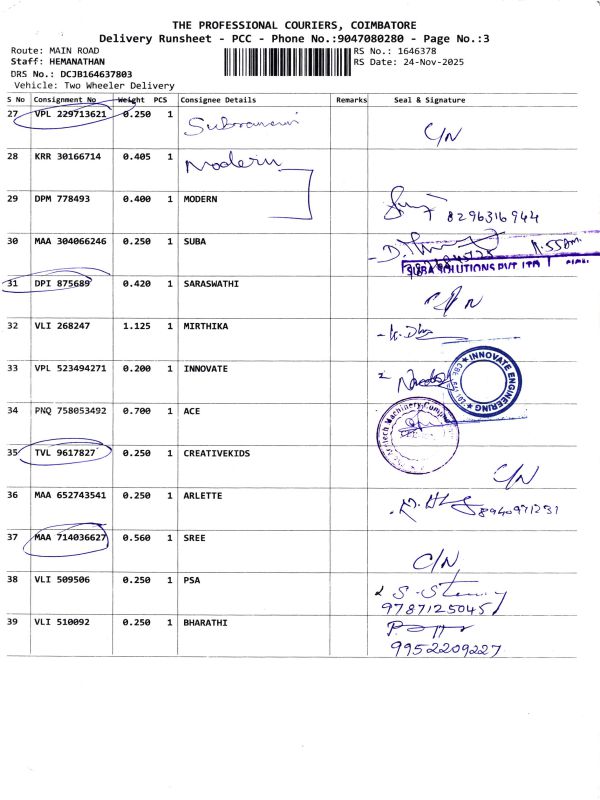 THE PROFESSIONAL COURIERS, COIMBATORE
Delivery Runsheet - PCC - Phone No.:9047080280 - Page No.:3
Route: MAIN ROAD
RS No.: 1646378
Staff: HEMANATHAN
RS Date: 24-Nov-2025
DRS No.: DCJB164637803
Vehicle: Two Wheeler Delivery
S No Consignment No Weight PCS Consignee Details Remarks Seal & Signature
27 VPL 229713621 0.250 1 C/N
28 KRR 30166714 0.405 1 Modern
29 DPM 778493 0.400 1 MODERN 8296316944
30 MAA 304066246 0.250 1 SUBA 11.55Am
SUBA SOLUTIONS PVT LTD
31 DPI 875689 0.420 1 SARASWATHI C/N
32 VLI 268247 1.125 1 MIRTHIKA
33 VPL 523494271 0.200 1 INNOVATE
INNOVATE ENGINEERING
34 PNQ 758053492 0.700 1 ACE
35 TVL 9617827 0.250 1 CREATIVEKIDS C/N
36 MAA 652743541 0.250 1 ARLETTE 8940971231
37 MAA 714036627 0.560 1 SREE C/N
38 VLI 509506 0.250 1 PSA
9787125045
39 VLI 510092 0.250 1 BHARATHI
9952209227